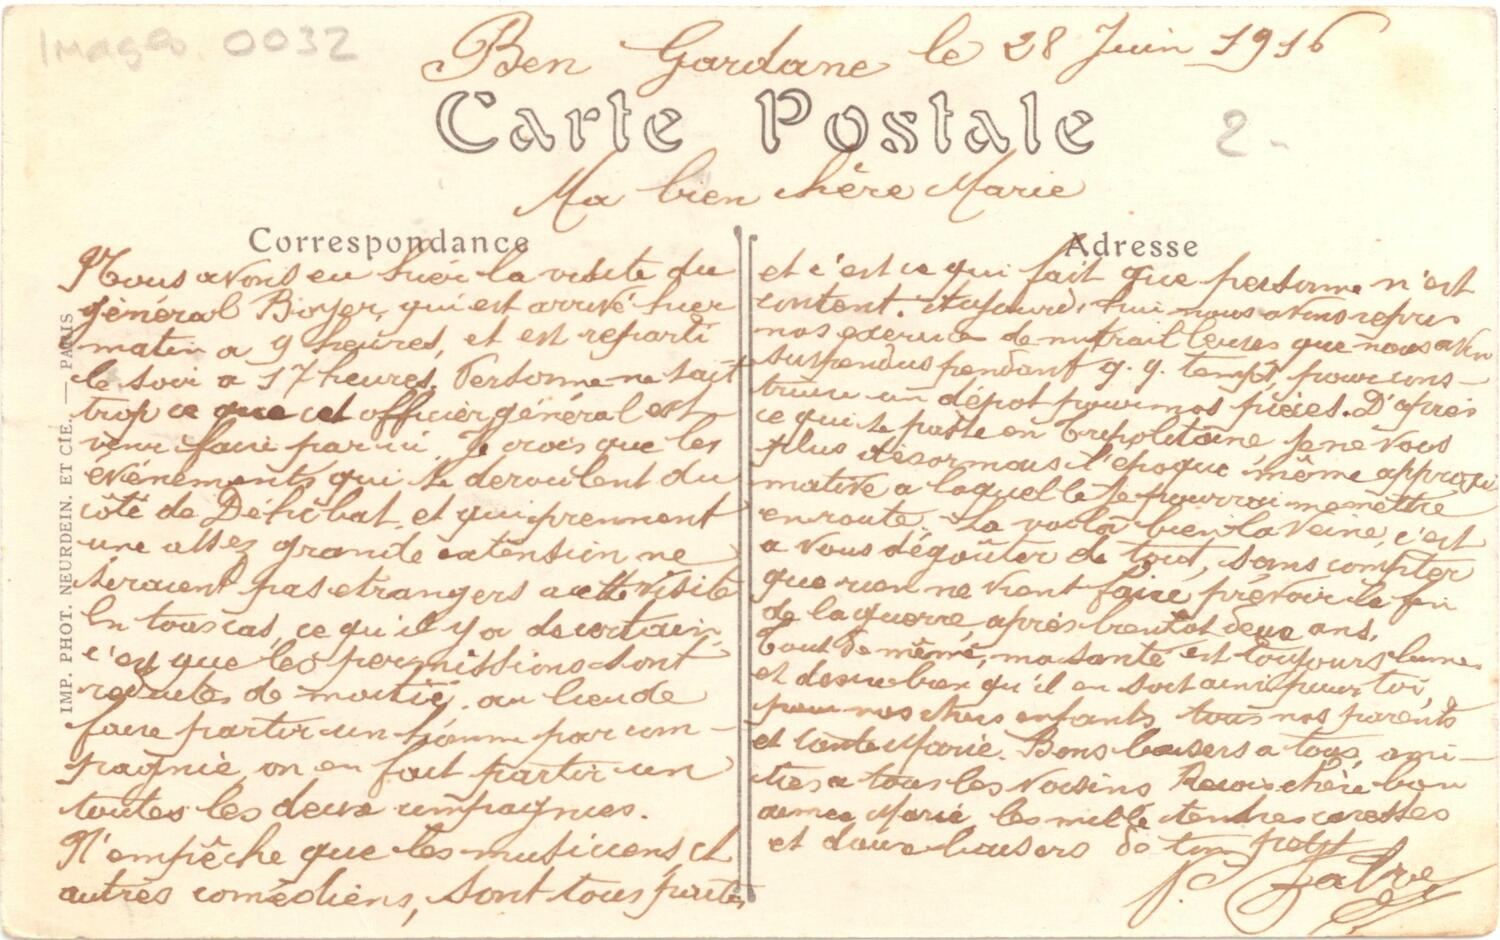 Images 0032
Ben Gardane le 28 Juin 1916
Carte Postale
2-
Ma bien chère Marie
Correspondance
Nous avons eu hier la visite du
général Boyer, qui est arrivé hier
matin a 9 heures, et est reparti
le soir a 17 heures. Personne ne sait
trop ce que cet officier général est
venu faire par ici. Je crois que les
évènements qui se deroulent du
côté de Déhibat, et qui prennent
une assez grande extension, ne
seraient pas etrangers a cette visite
En tous cas, ce qu'il y a de certain,
c'est que les permissions sont
reduites de moitié. au lieu de
faire partir un homme par com-
pagnie, on en fait partir un
toutes les deux compagnies.
N'empêche que les musiciens, et
autres comédiens, sont tous partis,
IMP. PHOT. NEURDEIN. ET CIE. — PARIS
Adresse
et c'est ce qui fait que personne n'est
content. Aujourd'hui nous avons repris
nos exercices de mitrailleuses que nous avions
suspendus pendant q. q. temps, pour cons-
truire un dépôt pour nos pièces. D'après
ce qui se passe en Tripolitaine je ne vous
plus désormais l'époque même approxi
mative a laquelle je pourrai me mettre
en route. La voilà bien la veine, c'est
a vous dégoûter de tout, sans compter
que rien ne vient faire prévoir la fin
de la guerre après bientot deux ans.
Tout de même, ma santé est toujours bonne
et desire bien qu'il en soit ainsi pour toi,
pour nos chers enfants, tous nos parents
et tante Marie. Bons baisers a tous, ami-
tiés a tous les voisins Reçois chère bien
aimée Marie les mille tendres caresses
et doux baisers de ton petit